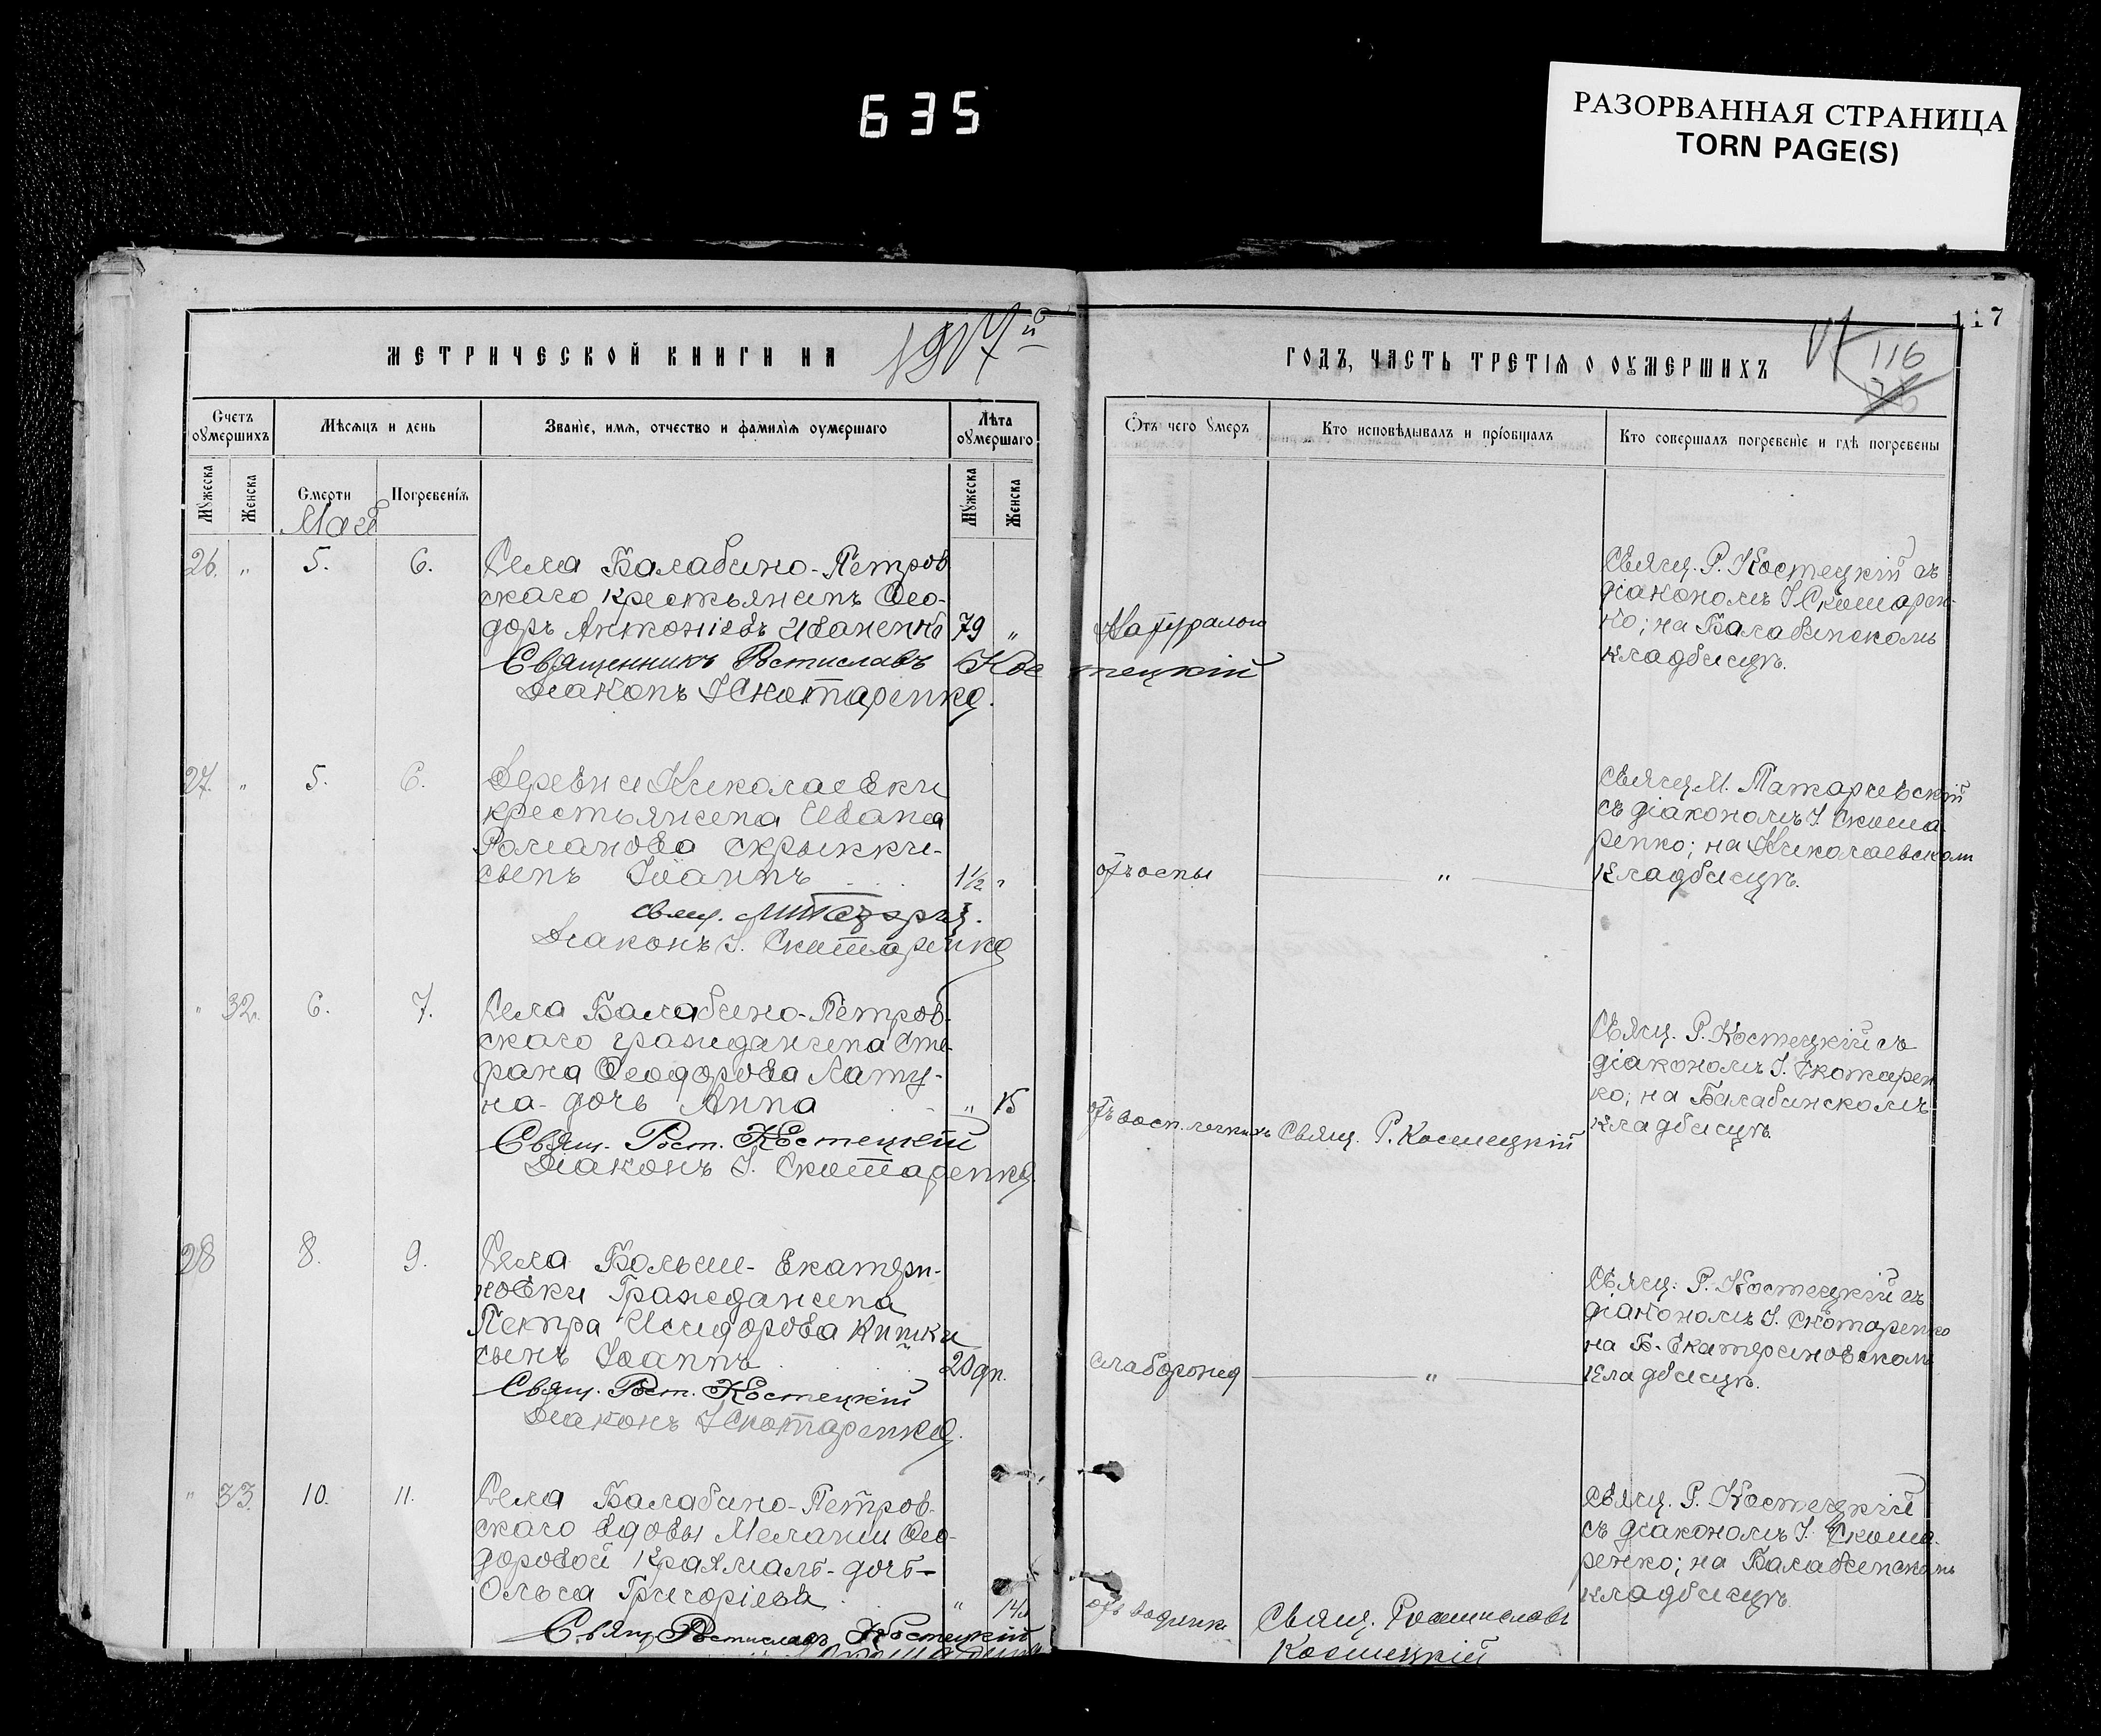 635
РАЗОРВАННАЯ СТРАНИЦА
TORN PAGE(S)
117
МЕТРИЧЕСКОЙ КНИГИ НА 1917й
ГОДЪ, ЧАСТЬ ТРЕТІЯ О ОУМЕРШИХЪ
116
Счетъ оумершихъ
Мѣсяцъ и день
Званіе, имя, отчество и фамилія оумершаго
Лѣта оумершаго
Мужеска
Женска
Смерти
Погребенія
Мужеска
Женска
Май
Отъ чего умеръ
Кто исповѣдывалъ и пріобщалъ
Кто совершалъ погребеніе и гдѣ погребены
26. " 5. 6.
Села Балабино-Петров
скаго крестьянинъ Ѳео-
доръ Антоніевъ Иваненко 79 "
Священникъ Ростиславъ Костецкій
Діаконъ І Скотаренко.
Священ. Р. Костецкій съ
діакономъ І Скотарен-
ко; на Балабинскомъ
кладбищѣ.
27. " 5. 6.
Деревни Николаевки
крестьянина Ивана
Романова Скрыпки-
сынъ Іоаннъ 1½ "
Діаконъ І. Скотаренко
отъ оспы
"
Священ М. Татарчевскій
съ діакономъ І. Скота
ренко; на Николаевском
кладбищѣ.
" 32. 6. 7.
Села Балабино-Петров-
скаго гражданина Сте-
фана Ѳеодорова Лату-
на- дочь Анна " 15
Свящ. Рост. Костецкій
Діаконъ І. Скотаренко.
отъ восп. легкихъ
Свящ. Р. Костецкій
Свящ. Р. Костецкій съ
діакономъ І. Скотарен
ко; на Балабинскомъ
кладбищѣ.
28 8. 9.
Села Больше-Екатери-
новки Гражданина
Петра Исидорова Кишки
сынъ Іоаннъ 20 дн.
Свящ. Рост. Костецкій
Діаконъ І Скотаренко.
"
Свящ. Р. Костецкій съ
діакономъ І. Скотаренко
на Б-Екатериновском
кладбищѣ.
" 33. 10. 11.
Села Балабино-Петров-
скаго вдовы Меланіи Ѳео-
доровой дочь-
Ольга Григоріева " 14
Свящ Ростиславъ Костецкій
отъ водянк.
Свящ. Ростиславъ
Костецкій
Свящ. Р. Костецкій
съ діакономъ І. Скота-
ренко; на Балабинскомъ
кладбищѣ.